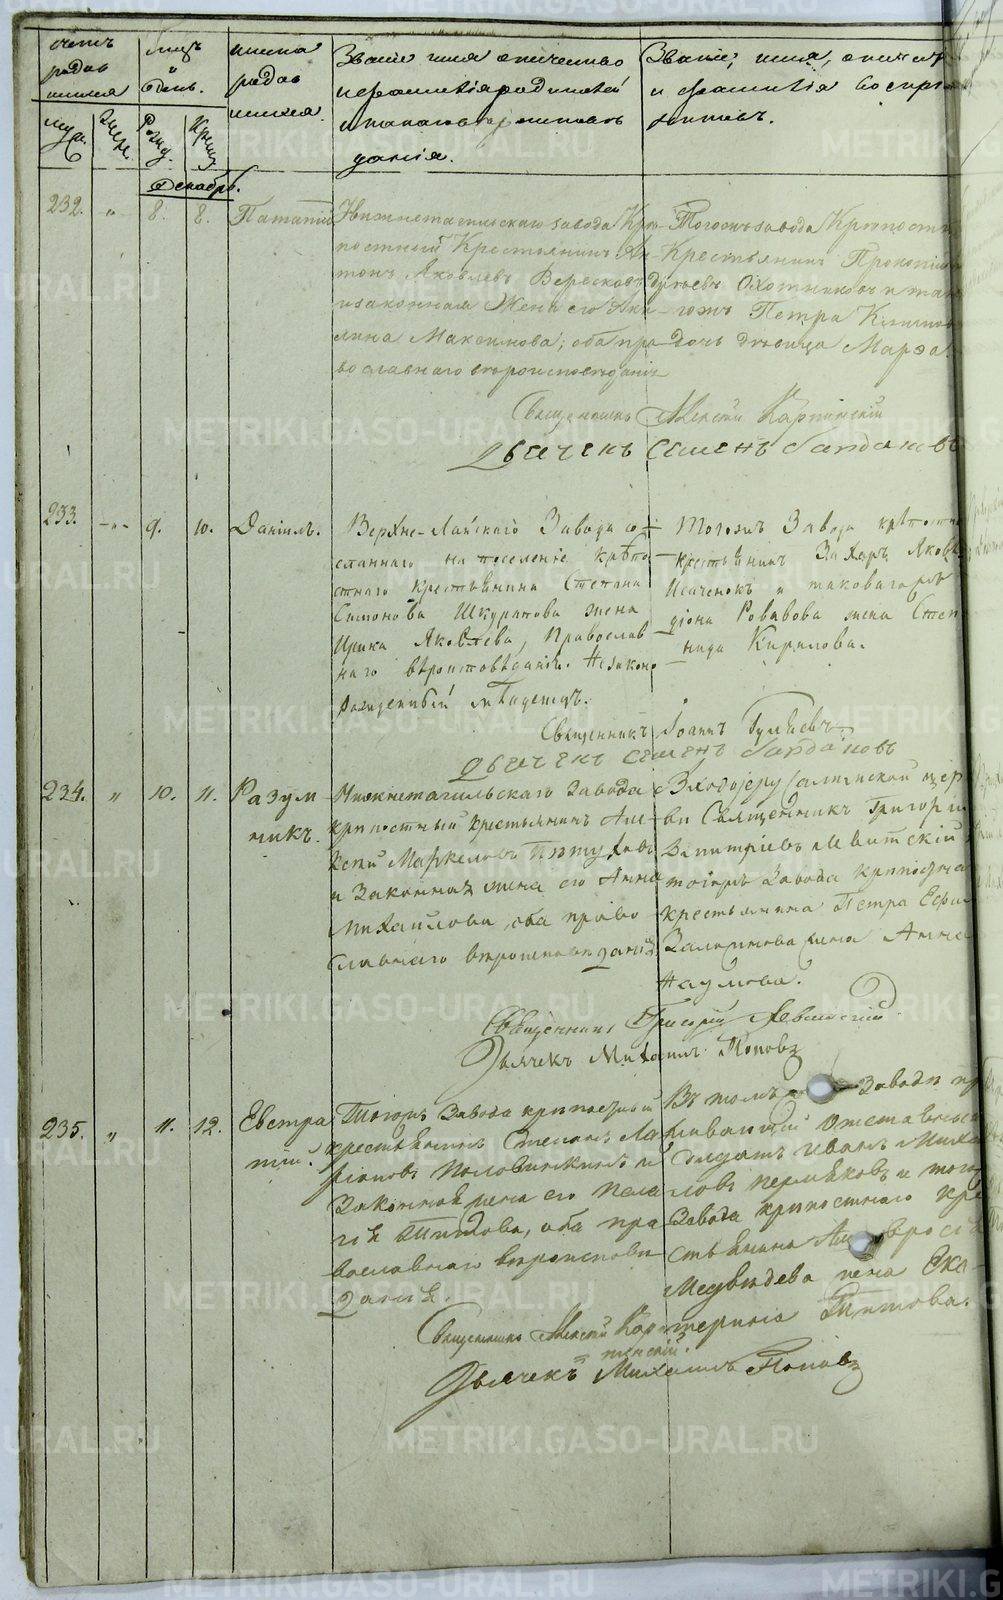 счетъ родившихся
мѣсяцъ и день.
имена родившихся.
Званіе имя отчество и фамилія родителей и какого вѣроисповѣданія.
Званіе, имя, отчест и фамилія воспріемниковъ.
муж. жен. рожд. крещ.
Декабрь.
232. " 8. 8. Патапій
Нижнетагильскаго завода Крѣ-
постный Крестьянинъ Ан
тонъ Яковлевъ Вересковъ
и законная Жена его Аки-
лина Максимова; оба пра
вославнаго вѣроисповѣданія
Тогожъ завода Крѣпостн
Крестьянинъ Прокопій
Охотниковъ и так
гожъ Петра Климов
дочь дѣвица Марѳа.
Священникъ Алексѣй Карпинскій
Дьячекъ Семенъ Сайдаковъ
233. " 9. 10. Даніилъ.
Верхне-Лайскаго Завода со
сланнаго на поселеніе крѣпо
стнаго крестьянина Степана
Симонова Шкуратова жена
Ирина Яковлева, Православ
наго вѣроисповѣданія. Незаконо
рожденный младенецъ.
Тогожъ Завода крѣпостн
крестьянинъ Захаръ Яковл
Исаченокъ и таковаго
жена Степ
нида Кирилова.
Священникъ Іоаннъ
Дьячекъ Семенъ Сайдаковъ
234. " 10. 11. Разум
никъ.
Нижнетагильскаго Завода
крѣпостный крестьянинъ Але
ксѣй Маркеловъ Пѣтуховъ
и Законная жена его Анна
Михайлова, оба право
славнаго вѣроисповѣданія
Входоіерусалимской цер
кви Священникъ Григорій
Димитріевъ Левитскій
тогожъ Завода крѣпостна
крестьянина Петра
жена Анна
Наумова.
Священникъ Григорій Левитскій
Дьячекъ Михаилъ Поповъ
235. " 11. 12. Евстра
тій.
Тогожъ Завода крѣпостный
крестьянинъ Степанъ Ла
ріоновъ Половинкинъ и
Законная жена его Пела
гія Титова, оба пра
вославнаго вѣроисповѣ
данія.
Въ томъ Заводѣ пр
живающій Отставный
Солдатъ Иванъ Миха
ловъ Пермяковъ и того
Завода крѣпостнаго кре
стьянина Амвросія
Медвѣдева жена Ека-
терина Титова.
Священникъ Алексѣй Карпинскій.
Дьячекъ Михаилъ Поповъ
METRIKI.GASO-URAL.RU